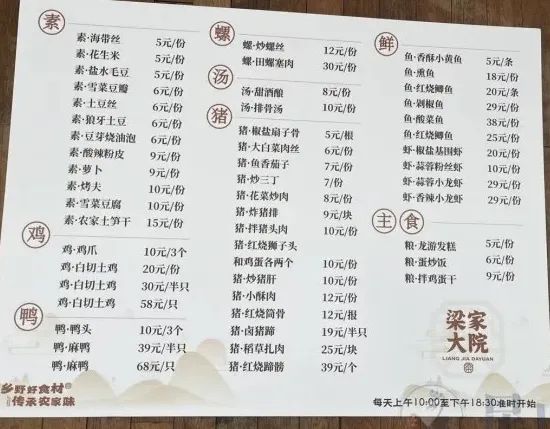 素
素·海带丝 5元/份
素·花生米 5元/份
素·盐水毛豆 5元/份
素·雪菜豆瓣 6元/份
素·土豆丝 6元/份
素·狼牙土豆 6元/份
素·豆芽烧油泡 6元/份
素·酸辣粉皮 9元/份
素·萝卜 9元/份
素·烤夫 10元/份
素·雪菜豆腐 10元/份
素·农家土笋干 15元/份
鸡
鸡·鸡爪 10元/3个
鸡·白切土鸡 20元/份
鸡·白切土鸡 30元/半只
鸡·白切土鸡 58元/只
鸭
鸭·鸭头 10元/3个
鸭·麻鸭 39元/半只
鸭·麻鸭 68元/只
乡野好食材
传承农家味
螺
螺·炒螺丝 12元/份
螺·田螺塞肉 30元/份
汤
汤·甜酒酿 8元/份
汤·排骨汤 10元/份
猪
猪·椒盐扇子骨 5元/根
猪·大白菜肉丝 6元/份
猪·鱼香茄子 7元/份
猪·炒三丁 7元/份
猪·花菜炒肉 8元/份
猪·炸猪排 9元/块
猪·拌猪头肉 10元/份
猪·红烧狮子头
和鸡蛋各两个 10元/份
猪·炒猪肝 10元/份
猪·小酥肉 12元/份
猪·红烧筒骨 12元/根
猪·卤猪蹄 19元/半只
猪·稻草扎肉 25元/块
猪·红烧蹄髈 39元/个
鲜
鱼·香酥小黄鱼 5元/条
鱼·熏鱼 18元/份
鱼·红烧鲫鱼 20元/条
鱼·剁椒鱼 29元/份
鱼·酸菜鱼 38元/份
鱼·红烧鲫鱼 25元/份
虾·椒盐基围虾 20元/份
虾·蒜蓉粉丝虾 10元/份
虾·蒜蓉小龙虾 29元/份
虾·香辣小龙虾 29元/份
主食
粮·龙游发糕 5元/份
粮·蛋炒饭 6元/份
粮·拌鸡蛋干 9元/份
梁家
大院
LIANG JIA DAYUAN
每天上午10:00至下午18:30准时开始